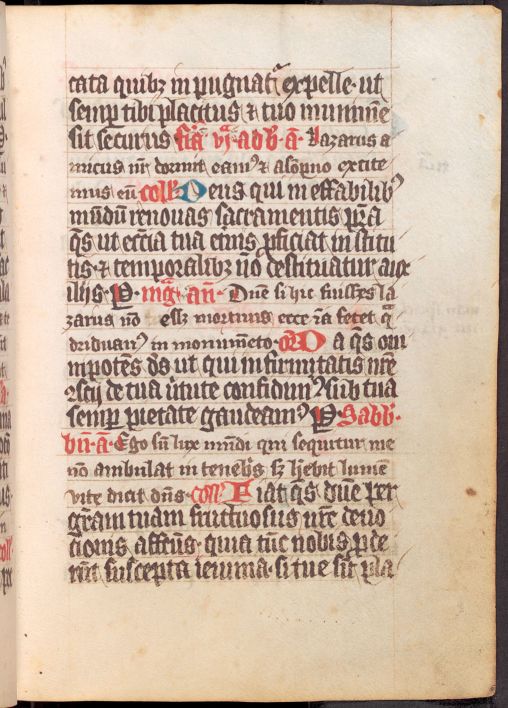 cata quibꝫ inpugnatᷓ expelle· ut
semꝑ tibi placitus ⁊ tuo munime
sit securus fīa vıᷓ· ad b̄· a᷒ Lazarus a
micus nr̄ dormit eamꝰ ⁊ a sōpno excite
mus eū coll̄ Deus qui ineffabilibꝰ
mūdū renouas sacramentis p̄ra
q̄s ut eccīa tua et̄nis ꝓficiat institu
tis· ⁊ temporalibꝫ nō destituatur aux
ilijs· P· mḡ· an̄· Dn̄e si hic fuisses la
zarus nō eēt mortuus ecce iā fetet q̄
driduanꝰ in monumēto· or̄ Da q̄s om
nipotēs d̄s ut qui infirmitatis nr̄e
ꝯscij de tua ūtute confidimꝰ sub tua
semꝑ pietate gaudeamꝰ P· Sabb̄·
bn̄· a᷒· Ego sū lux mūdi qui sequitur me
nō ambulat in tenebꝰs sꝫ hēbit lumē
vite dicit dn̄s· coll̄ Fiat q̄s dn̄e per
gr̄am tuam fructuosus nr̄e deuo
cionis affctūs· quia tūc nobis ꝓde
rūt suscepta ieiunia· si tue sīt pla